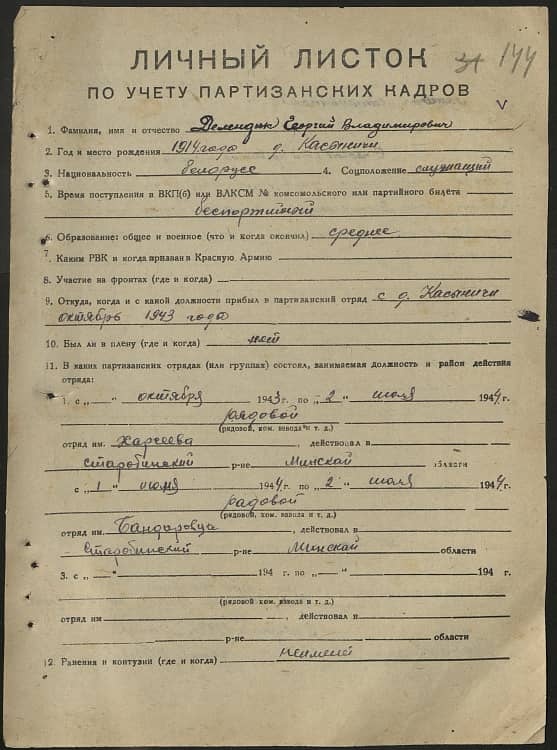 144
ЛИЧНЫЙ ЛИСТОК
ПО УЧЕТУ ПАРТИЗАНСКИХ КАДРОВ
V
1. Фамилия, имя и отчество Демидчик Георгий Владимирович
2. Год и место рождения 1914 года д. Касыничи
3. Национальность белорусс 4. Соцположение служащий
5. Время поступления в ВКП(б) или ВЛКСМ № комсомольского или партийного билета
беспортийный
6. Образование: общее и военное (что и когда окончил) среднее
7. Каким РВК и когда призван в Красную Армию
8. Участие на фронтах (где и когда)
9. Откуда, когда и с какой должности прибыл в партизанский отряд с д. Касыничи
октябрь 1943 года
10. Был ли в плену (где и когда) нет
11. В каких партизанских отрядах (или группах) состоял, занимаемая должность и район действия
отряда:
1. с „ “ октября 1943 г. по „2 “ июля 1944 г.
рядовой
(рядовой, ком. взвода и т. д.)
отряд им. , действовал в
Старобинский р-не Минской области
с „1 “ июня 1944 г. по „2 “ июля 1944 г.
рядовой
(рядовой, ком. взвода и т. д.)
отряд им. Бандаровца, действовал в
Старобинский р-не Минской области
3. с „ “ 194 г. по „ “ 194 г.
(рядовой ком. взвода и т. д.)
отряд им , действовал в
р-не области
12. Ранения и контузии (где и когда) неимеет